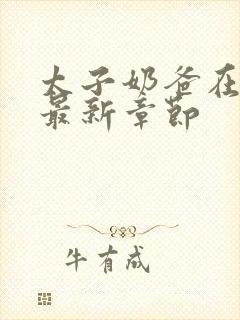 太子奶爸在
最新章节
牛有成